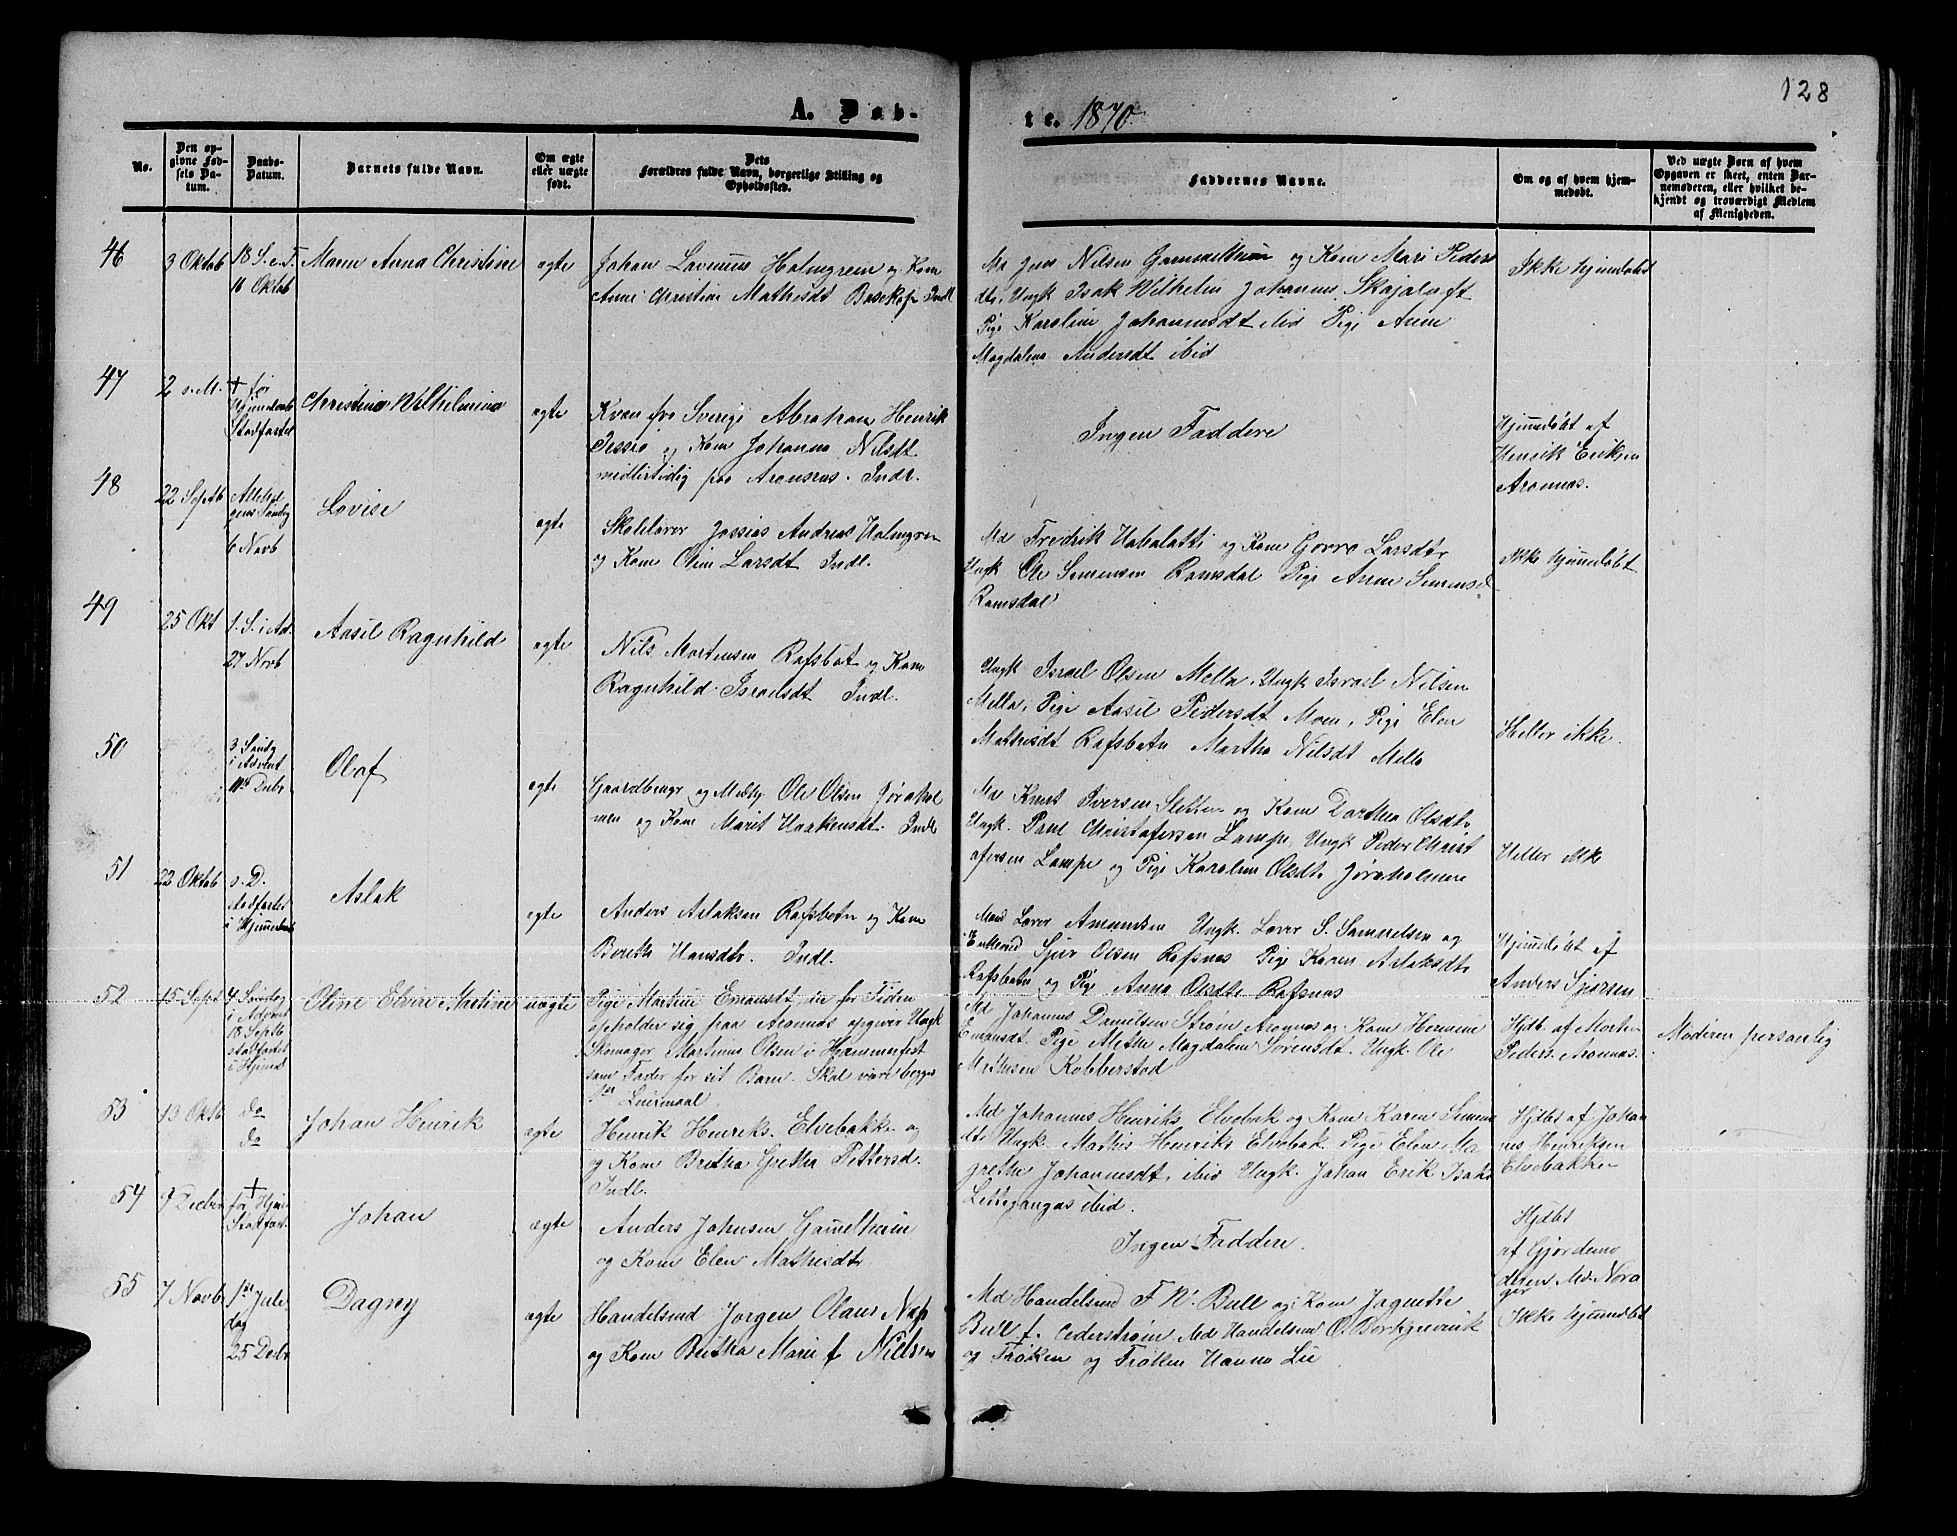 128
A. Daab-
te. 1870
No.
Den op-
givne Fød-
sels Da-
tum.
Daabs-
Datum.
Barnets fulde Navn.
Om ægte
eller uægte
født.
Dets
Forældres fulde Navn, borgerlige Stilling og
Opholdssted.
Faddernes Navne.
Om og af hvem hjem-
medøbt.
Ved uægte Børn af hvem
Opgaven er skeet, enten Bar-
nemoderen, eller hvilket be-
kjendt og troværdigt Medlem
af Menigheden.
46
3 Oktob
18 S. e. T.
16 Oktob
Maren Anna Christine
ægte
Johan Lavinius Holmgrein og Kone
Anne Christine Mathisdt Bosekop Indl
Md Jens Nilsen Gammelheim og Kone Mari Peders
dt. Ungk Isak Wilhelm Johannes Skajaluft
Pige Karoline Johannesdt ibid Pige Anne
Magdalena Andersdt ibid
Ikke hjemdøbt
47
2 s. M.
† før
Hjemdaab
Stadfæstet
Christina Wilhelmina
ægte
Kvæn fra Sverige Abraham Henrik
og Kone Johanna Nilsdt
midlertidig paa Aronsnes. Indl.
Ingen Faddere
Hjemdøbt af
Henrik Eriksen
Aronnæs.
48
22 Septb
Allehel
gens Søndg
6 Novb
Lovise
ægte
Skolelærer Jossias Andreas Holmgren
og Kone Oline Larsdt Indl.
Md Fredrik Habalatti og Kone Larsdtr
Ungk Ole Simonsen Ramsdal Pige Anne Simonsd
Ramsdal
Ikke hjemmdøbt
49
25 Okt
1. S. i Ad.
27 Novb
Aasil Ragnhild
ægte
Nils Mortensen Rafsbot og Kone
Ragnhild Israelsdt Indl.
Ungk Israel Olsen Mella, Ungk Israel Nilsen
Mella, Pige Aasil Pedersdt Moen, Pige Elen
Mathisdt Rafsbotn Martha Nilsdt Mella
Heller ikke.
50
3 Søndg
i Advent
11te Debr
Olaf
ægte
Gaardbruger og Medhj Ole Olsen Jørahol
men og Kone Marit Haakensdt. Indl
Md Knut Iversen Sletten og Kone Dorthea Olsdt.
Ungk. Paul Christofersen Lampe, Ungk Peder Christ
ofersen Lampe og Pige Karolin Olsdt. Jøraholmen
Heller ikke
51
22 Oktob
s. D.
stadfæstet
i Hjemdaab
Aslak
ægte
Anders Aslaksen Rafsbotn og Kone
Berethe Hansdtr. Indl.
Mand Lærer Amundsen Ungk. Lærer S. Samuelsen og
Enkemd Sjur Olsen Rafsnæs Pige Karen Aslaksdt.
Rafsbotn og Pige Anna Olsdt. Rafsnæs
Hjemdøbt af
Anders Sjursen
52
15 Sept
4. Søndag
i Advent
18 Septb
stadfæstet
i Hjemd
Oline Elvine Martine
uægte
Pige Martine Emansdt, der for Tiden
opholder sig paa Aronnæs opgiver Ungk
Skomager Martinus Olsen i Hammerfest
som Fader for sit Barn. Skal være beges
1ste Leiermaal.
Md Johannes Danielsen Strøm Aronnæs og Kone Hermine
Emansdt. Pige Alethe Magdalene Sørensdt. Ungk. Ole
Mathisen Kobberstad
Hjdb. af Morten
Peders. Aronnæs.
Moderen personlig
53
13 Oktb
do
do
Johan Henrik
ægte
Henrik Henriks. Elvebakken og
og Kone Britha Gretha Pettersd.
Indl.
Md Johannes Henriks Elvebak og Kone Karen Simons
dt. Ungk. Mathis Henriks Elvebak. Pige Elen Ma
grethe Johannesdt. ibid Ungk. Johan Erik Isaks
ibid.
Hjdbt af Johan
nes Henriksen
Elvebakken
54
9 Decbr
†
før Hjem
Statfæst.
Johan
ægte
Anders Johnsen Gamelheim
og Kone Elen Mathisdt.
Ingen Faddere.
Hjdbt
af Gjordemo
deren Md. Nora
ger
55
7 Novb
1ste Jule
dag
25 Debr
Dagny
ægte
Handelsmd Jørgen Olaus Næs
og Kone Britha Marie f. Nielsen
Md Handelsmd F. W. Bull og Kone Jaquette
Bull f. Cederstrøm Md Handelsmd O. Borkgrevink
og Frøken og Frøken Hanna Lie
Ikke hjemdøbt